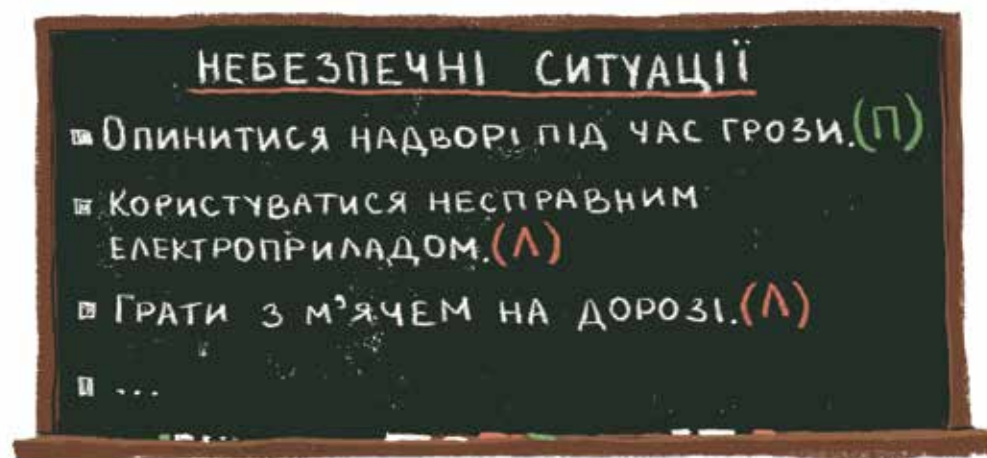 НЕБЕЗПЕЧНІ СИТУАЦІЇ
ОПИНИТИСЯ НАДВОРІ ПІД ЧАС ГРОЗИ.(П)
КОРИСТУВАТИСЯ НЕСПРАВНИМ
ЕЛЕКТРОПРИЛАДОМ.(Л)
ГРАТИ З М'ЯЧЕМ НА ДОРОЗІ.(Л)
...